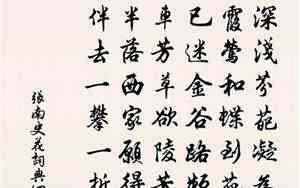 深淺芬葩凝為
霞鶯和蝶到苑
已迷金谷路頻
車芳草欲陵芳
半落西家願得
伴去一攀一折
張南史花詞典